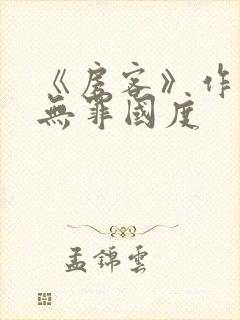 《房客》作
無罪國度
孟錦雲